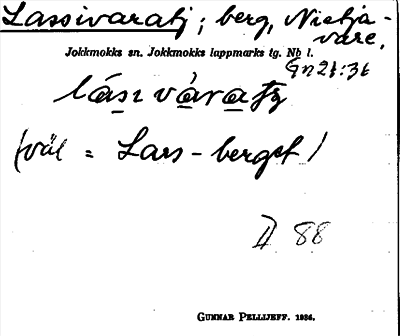 Lassivaratj; berg, Nietja-
vare,
Jokkmokks sn. Jokkmokks lappmarks tg. Nb l.
Gn 26:36
(väl = Lars-berget)
II 88
GUNNAR PELLIJEFF. 1936.